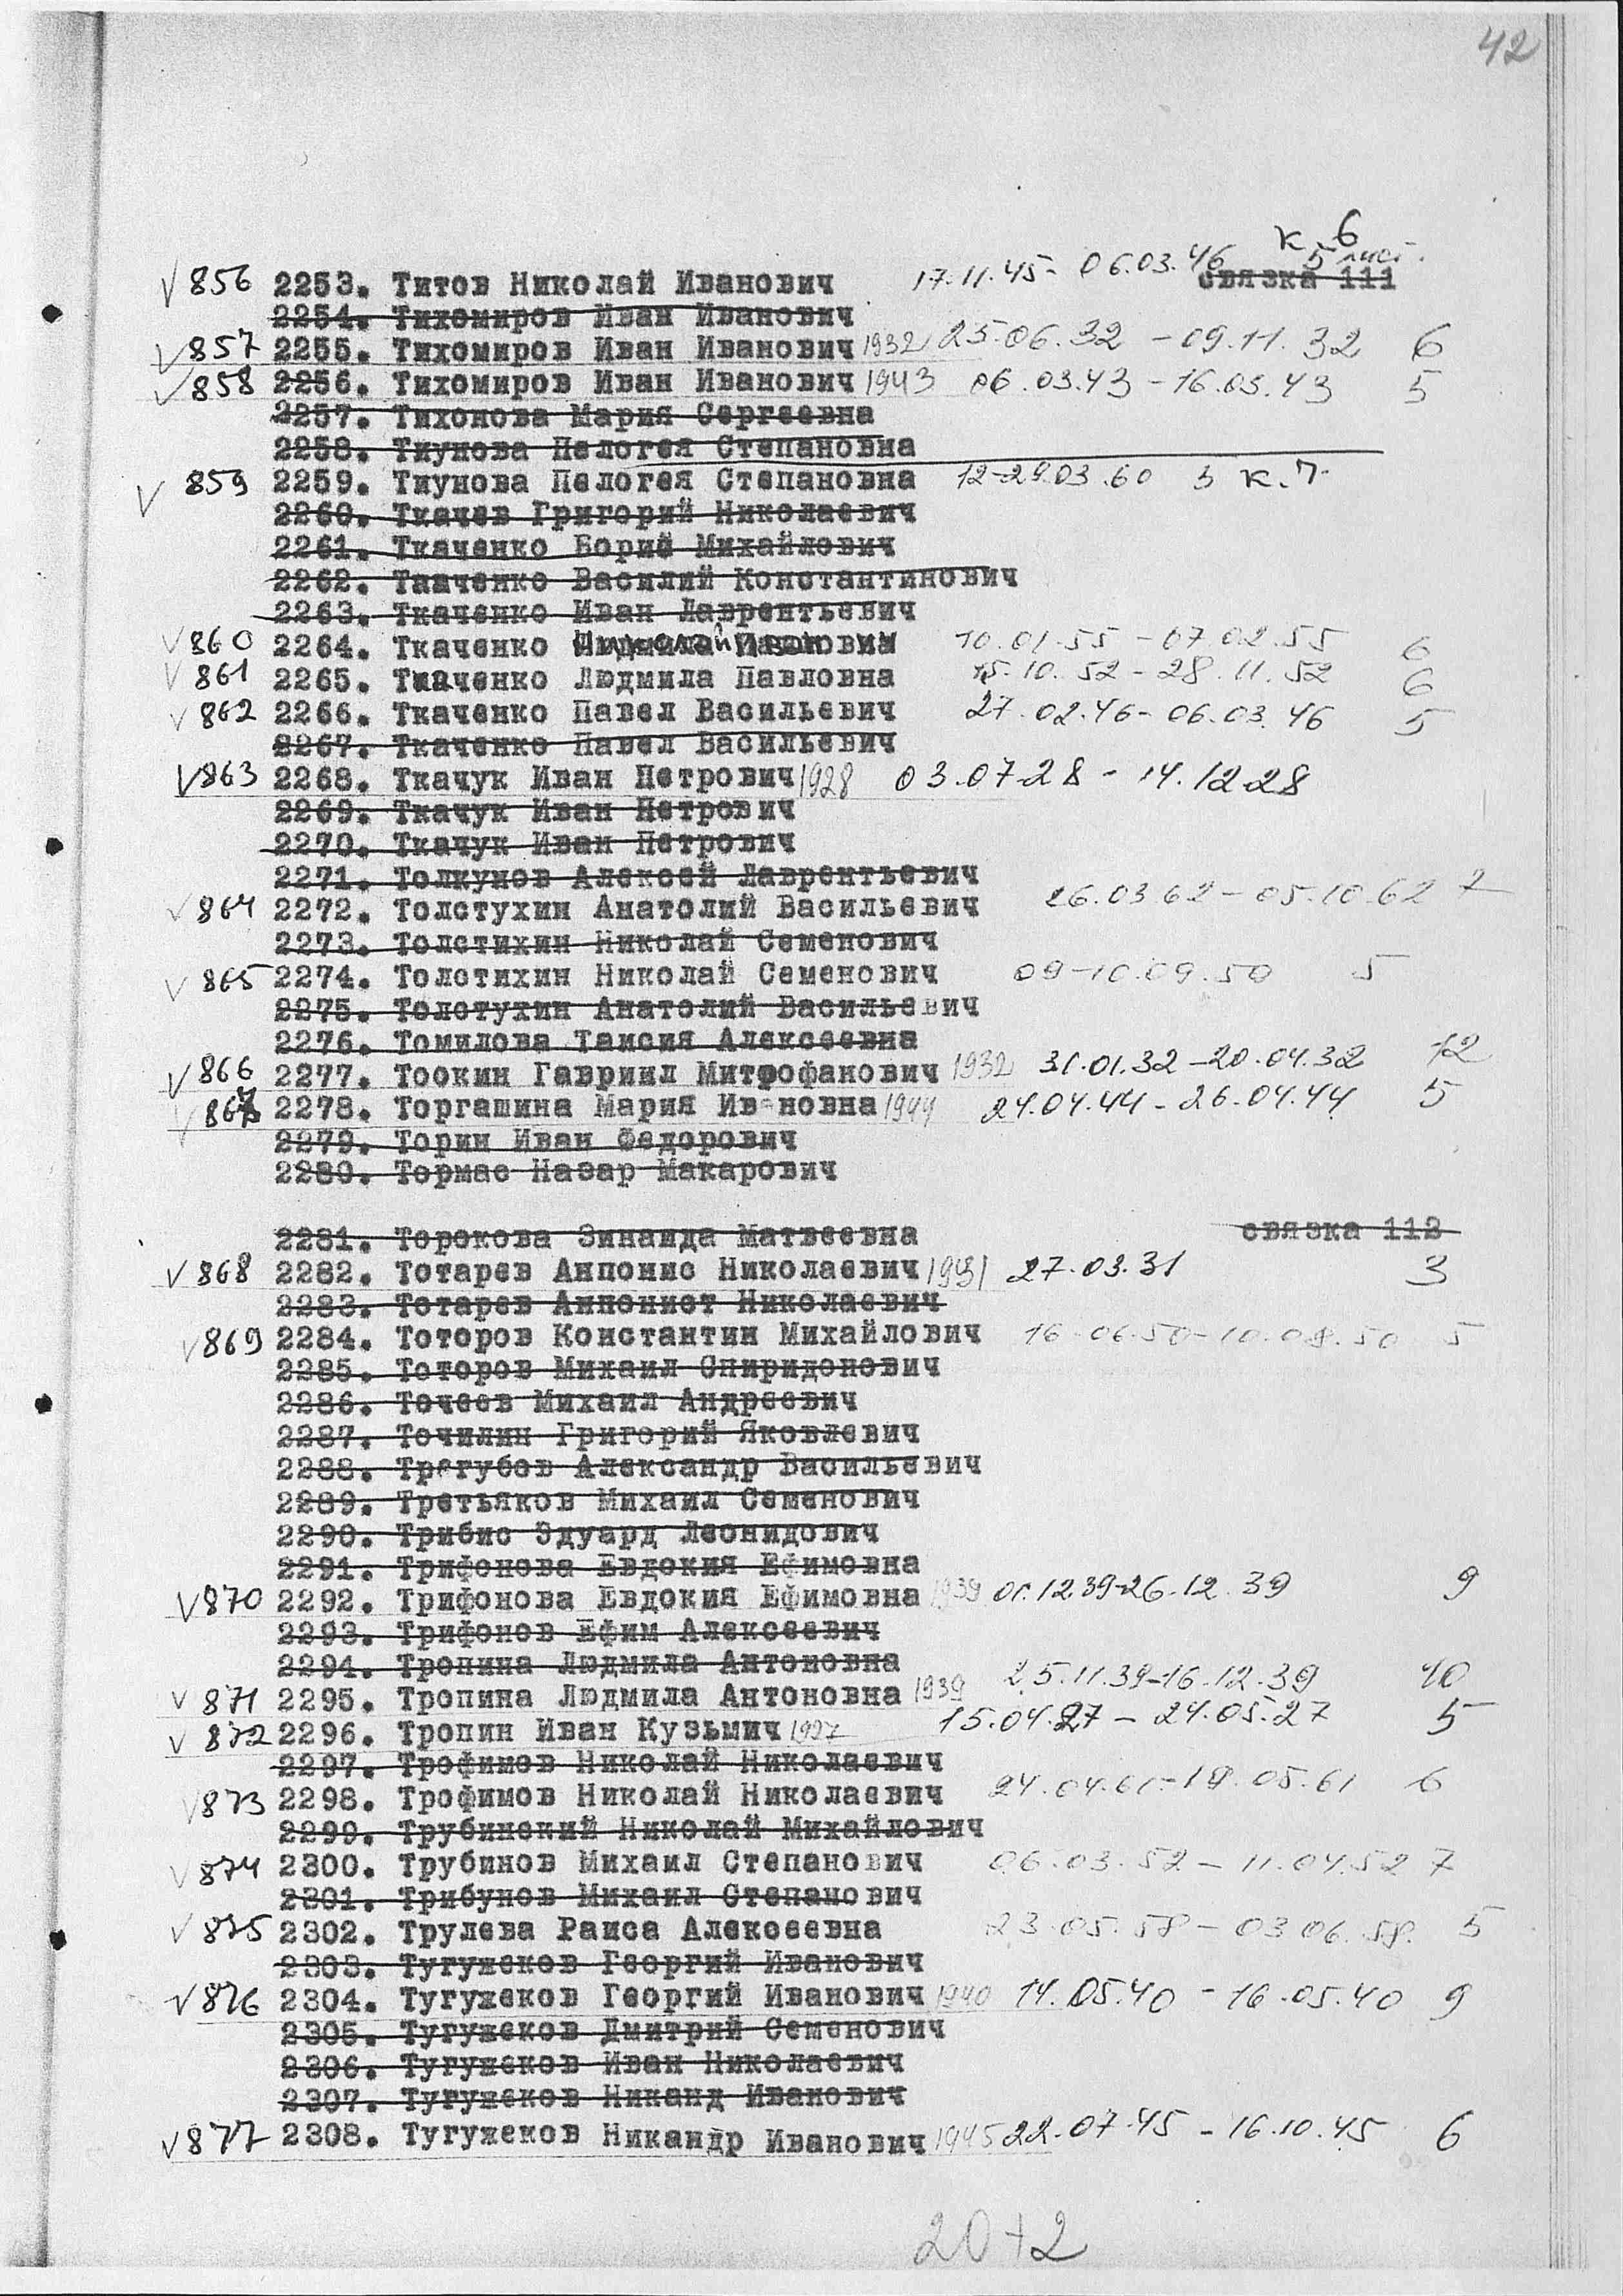 42
к 6
√ 856 2253. Титов Николай Иванович 17.11.45- 06.03.46 5 лист.
связка 111
2254. Тихомиров Иван Иванович
√ 857 2255. Тихомиров Иван Иванович 1932 25.06.32 - 09.11.32 6
√ 858 2256. Тихомиров Иван Иванович 1943 06.03.43 - 16.05.43 5
2257. Тихонова Мария Сергеевна
2258. Тиунова Пелогея Степановна
√ 859 2259. Тиунова Пелогея Степановна 12-29.03.60 5 к.7
2260. Ткачев Григорий Николаевич
2261. Ткаченко Борис Михайлович
2262. Ткаченко Василий Константинович
2263. Ткаченко Иван Лаврентьевич
√ 860 2264. Ткаченко 10.01.55 - 07.02.55 6
√ 861 2265. Ткаченко Людмила Павловна 15.10.52 - 28.11.52 6
√ 862 2266. Ткаченко Павел Васильевич 27.02.46 - 06.03.46 5
2267. Ткаченко Павел Васильевич
√ 863 2268. Ткачук Иван Петрович 1928 03.07.28 - 14.12.28
2269. Ткачук Иван Петрович
2270. Ткачук Иван Петрович
2271. Толкунов Алексей Лаврентьевич
√ 864 2272. Толстухин Анатолий Васильевич 26.03.62 - 05.10.62 7
2273. Толстихин Николай Семенович
√ 865 2274. Толстихин Николай Семенович 09-10.09.50 5
2275. Толстухин Анатолий Васильевич
2276. Томилова Таисия Алексеевна
√ 866 2277. Тоокин Гавриил Митрофанович 1932 31.01.32 - 20.04.32 12
√ 867 2278. Торгашина Мария Ив новна 1944 24.04.44 - 26.04.44 5
2279. Торин Иван Федорович
2280. Тормас Назар Макарович
2281. Торокова Зинаида Матвеевна связка 112
√ 868 2282. Тотарев Анпонис Николаевич 1931 27.03.31 3
2283. Тотарев Анпонист Николаевич
√ 869 2284. Тоторов Константин Михайлович 16.06.50 - 10.08.50 5
2285. Тоторов Михаил Спиридонович
2286. Точеев Михаил Андреевич
2287. Точилин Григорий Яковлевич
2288. Трегубов Александр Васильевич
2289. Третьяков Михаил Семенович
2290. Трибис Эдуард Леонидович
2291. Трифонова Евдокия Ефимовна
√ 870 2292. Трифонова Евдокия Ефимовна 1939 01.12.39-26.12.39 9
2293. Трифонов Ефим Алексеевич
2294. Тропина Людмила Антоновна
√ 871 2295. Тропина Людмила Антоновна 1939 25.11.39-16.12.39 10
√ 872 2296. Тропин Иван Кузьмич 1927 15.04.27 - 24.05.27 5
2297. Трофимов Николай Николаевич
√ 873 2298. Трофимов Николай Николаевич 24.04.61 - 18.05.61 6
2299. Трубинский Николай Михайлович
√ 874 2300. Трубинов Михаил Степанович 06.03.52 - 11.04.52 7
2301. Трибунов Михаил Степанович
√ 875 2302. Трулева Раиса Алексеевна 23.05.58 - 03.06.58. 5
2303. Тугужеков Георгий Иванович
√ 876 2304. Тугужеков Георгий Иванович 1940 14.05.40 - 16.05.40 9
2305. Тугужеков Дмитрий Семенович
2306. Тугужеков Иван Николаевич
2307. Тугужеков Никанд Иванович
√ 877 2308. Тугужеков Никандр Иванович 1945 22.07.45 - 16.10.45 6
20+2